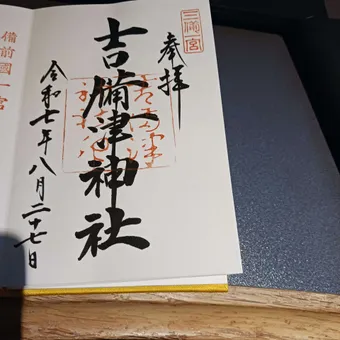 奉拝
吉備津神社
令和七年八月二十七日
備前國一宮